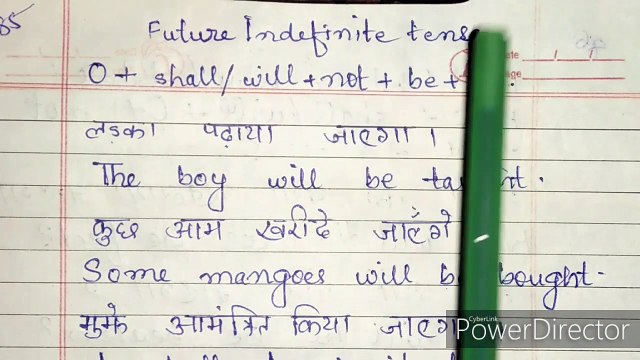 35
Future Indefinite tens
O + shall/will + not + be +
लड़का पढ़ाया जाएगा ।
The boy will be
कुछ आम खरीदे जाएँगे
Some mangoes will bought.
मुझे आमंत्रित किया जाएगा
CyberLink
PowerDirector